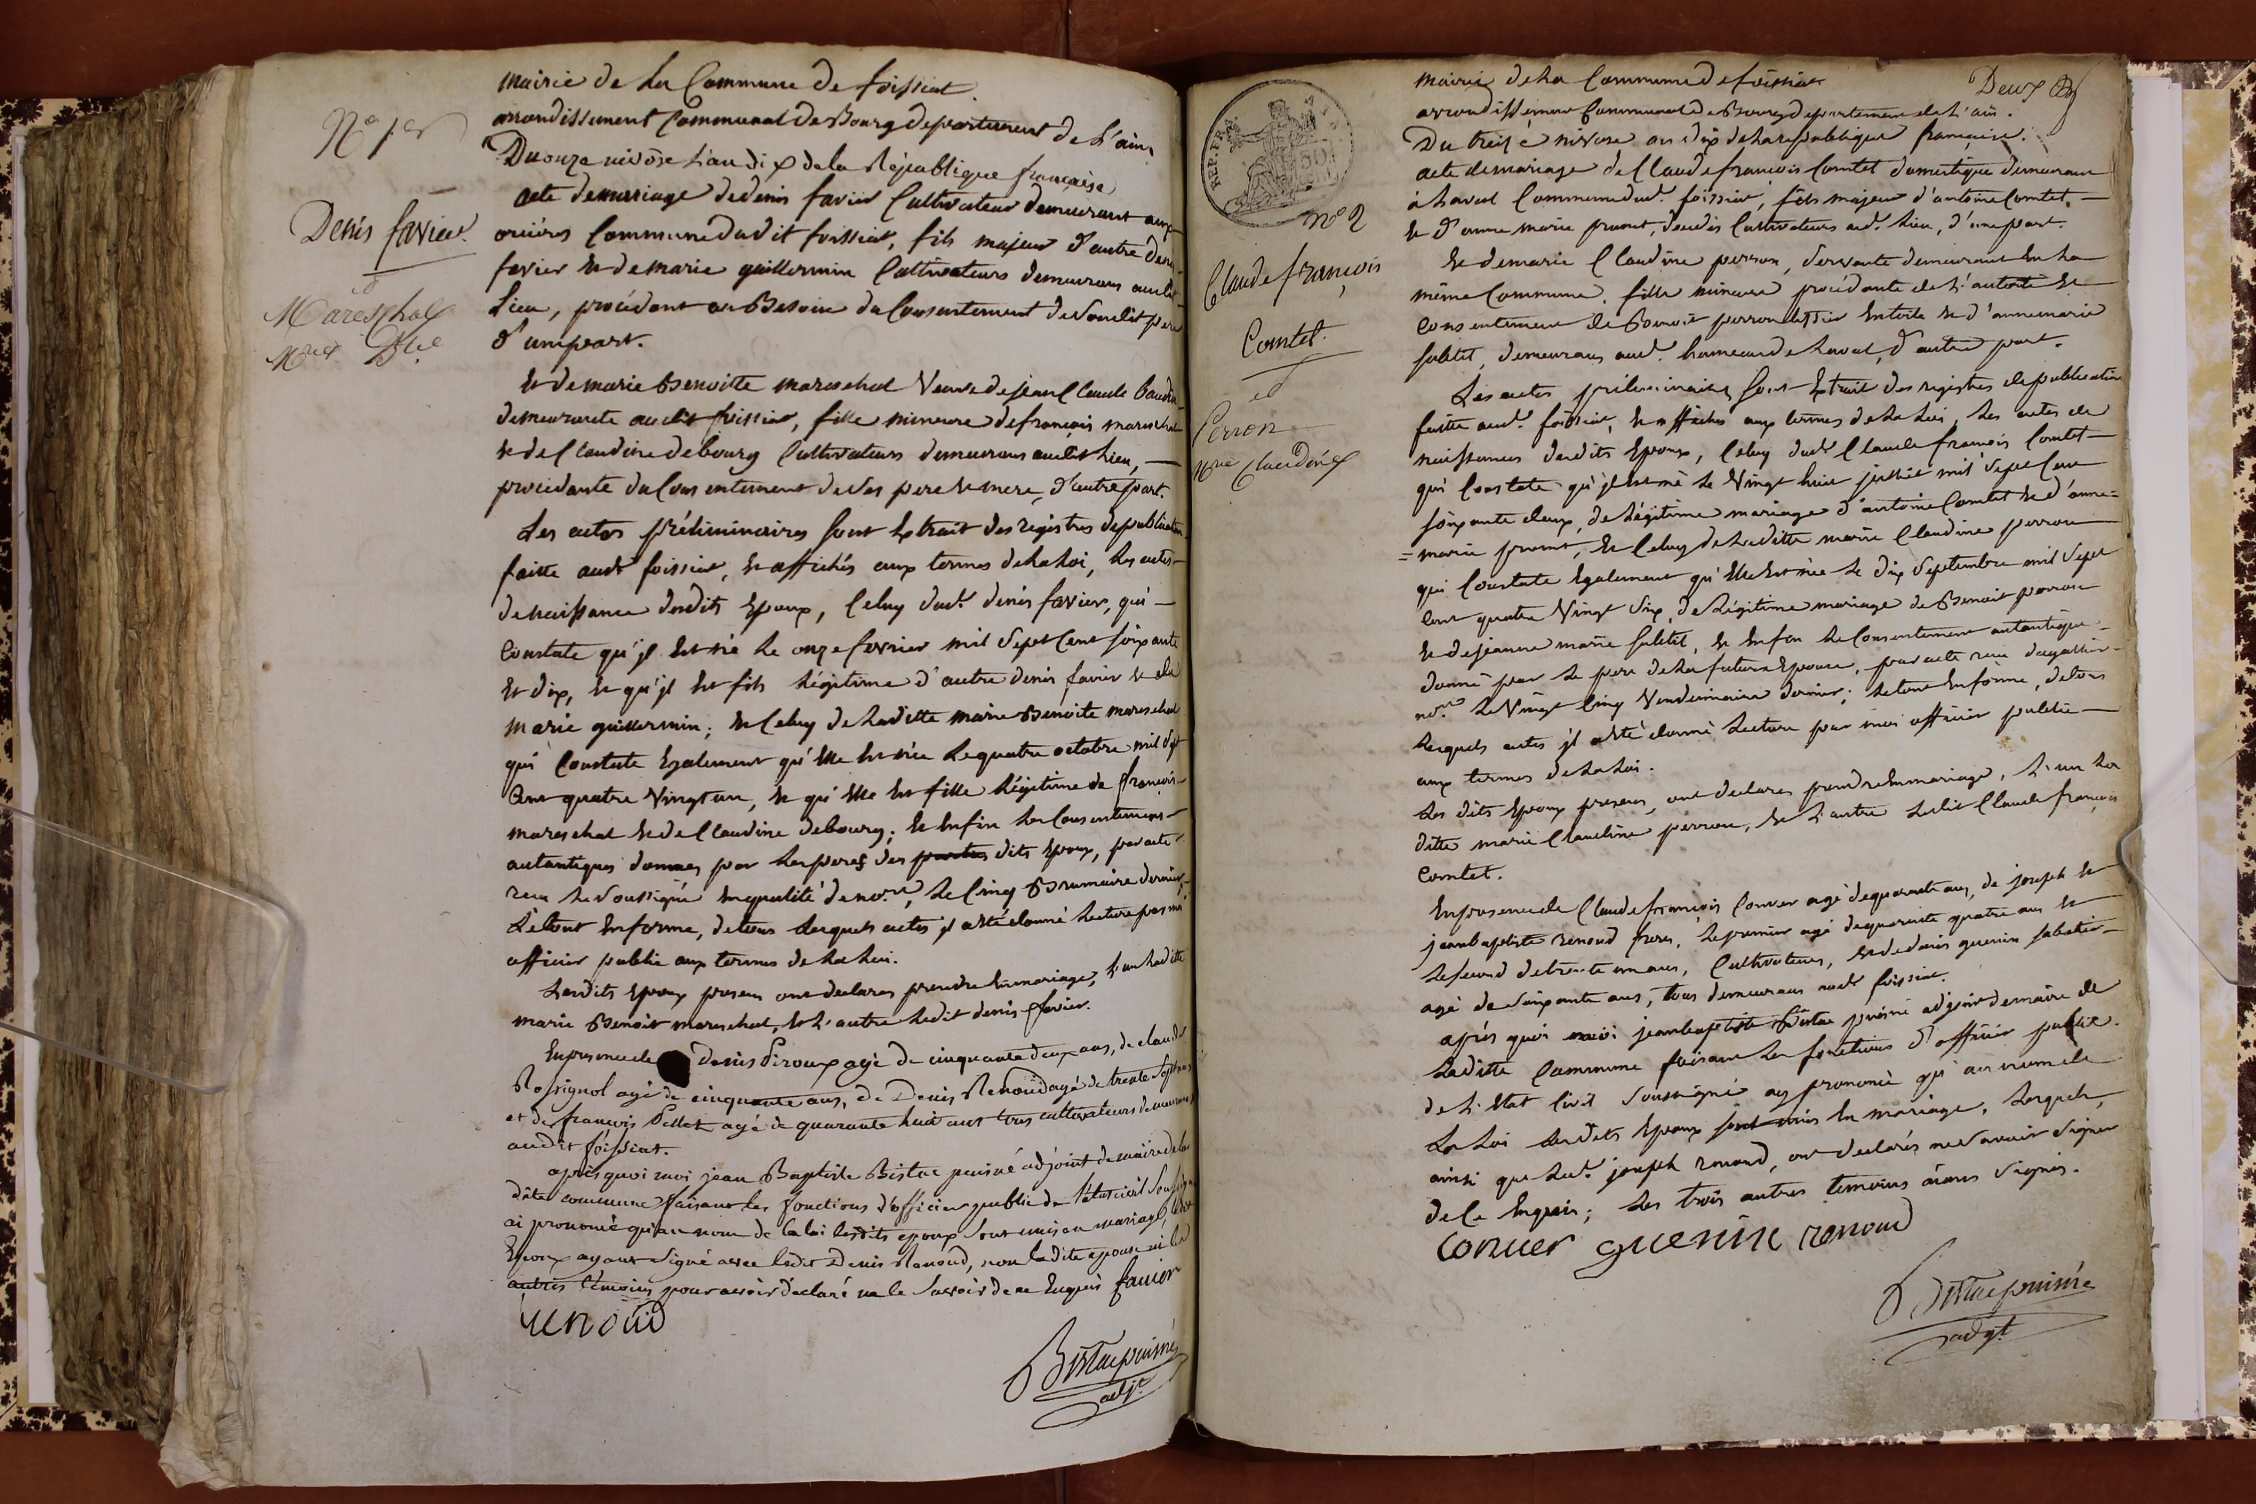 mairie de La Commune de foissiat
arrondissement Communal de Bourg departement de L'ain
Du onze nivôse L'an dix de la République française
N° 1er
acte de mariage de denis favier Cultivateur demeurant aux
Denis favier
Commune dudit foissiat, fils majeur d'autre denis
favier et de marie guillermin Cultivateurs demeurans audit
Lieu, procédant au Besoin du Consentement de Son dit pere
d'une part.
et
Mareschal
Mrie Bte
Et de marie Benoitte mareschal Veuve de jean Claude
demeurante audit foissiat, fille mineure de françois mareschal
et de Claudine debourg Cultivateurs demeurans audit Lieu,
procédante du Consentement de Ses pere et mere, d'autre part.
Les actes préliminaires sont Extrait des registres de publication
faitte audt foissiat, et affichés aux termes de La Loi, Les actes
de naissance desdits Epoux, Celuy dudt denis favier, qui
Constate qu'jl Est né Le onze fevrier mil Sept Cent soixante
Et dix, et qu'jl Est fils Légitime d'autre denis favier et de
marie guillermin; et Celuy de Laditte marie Benoite mareschal
qui Constate Egalement qu'Elle Est née Le quatre octobre mil Sept
Cent quatre Vingt un, et qu'Elle Est fille Légitime de françois
mareschal et de Claudine debourg; et Enfin Les Consentemens
autantiques donnés par Les peres des dits Epoux, par acte
recu Le Soussigné En qualité de no.re, Le Cinq Brumaire dernier
Le tout En forme, de tous Lesquels actes jl a été donné Lecture par moi
officier public aux termes de La Loi.
Lesdits Epoux presens ont declarés prendre En mariage, L'un Laditte
marie Benoit mareschal, Et L'autre Ledit denis favier.
En presence de Denis Piroux agé de cinquante deux ans, de claude
Rossignol agé de cinquante ans, de Denis Renoud agé de trente Sept ans
et de françois Pellet agé de quarante huit ans tous cultivateurs demeurans
audit foissiat.
après quoi moi jean Baptiste Bistac puisné adjoint de maire de la
dite commune faisant les fonctions d'officier public de l'état civil Soussigné
ai prononcé qu'au nom de la loi lesdits epoux sont unis en mariage,
Epoux ayant Signé avec ledit Denis Renoud, non la dite epouse ni les
autres témoins pour avoir déclaré ne le Savoir de ce Enquis favier
renoud
Bistac puisné
adjt
mairie de La Commune de foissiat
Deux
arrondissement Communal de Bourg departement de L'ain.
Du treize nivose an dix de La republique française.
acte de mariage de Claude françois Comtet domestique demeurant
à Laval Commune dudt foissiat, fils majeur d'antoine Comtet,
et d'anne marie Cultivateurs audt Lieu, d'une part.
n° 2
Claude françois
Comtet.
et
Perron
Mrie Claudine
Et de marie Claudine perron, Servante demeurant En La
même Commune, fille mineure procédante de L'autorité et
Consentement de Benoit perron et d'annemarie
demeurans audt hameau de Laval, d'autre part.
Les actes préliminaires Sont Extrait des registres de publication
faitte audt foissiat, et affichés aux termes de La Loi, Les actes de
naissances desdits Epoux, Celuy dudt Claude françois Comtet
qui Constate qu'jl Est né Le Vingt huit juillet mil Sept Cent
soixante deux, de Légitime mariage d'antoine Comtet et d'anne=
=marie et Celuy de Laditte marie Claudine perron
qui Constate Egalement qu'Elle Est née Le dix Septembre mil Sept
Cent quatre Vingt Six, de Légitime mariage de Benoit perron
et de jeanne marie et Enfin Le Consentement autantique
donné par Le pere de La future Epouse, par acte recu
no.re Le Vingt Cinq Vendemiaire dernier; Le tout En forme, de tous
Lesquels actes jl a été donné Lecture par moi officier public
aux termes de La Loi.
Les dits Epoux presens, ont declarés prendre En mariage, L'un La
ditte marie Claudine perron, et L'autre Ledit Claude françois
Comtet.
En presence de Claude françois Convert agé de quarante ans, de joseph et
jean baptiste renoud freres, Le premier agé de quarante quatre ans et
Le Second de trente un ans, Cultivateurs, et de denis guenin Sabotier
agé de Soixante ans, tous demeurans audt foissiat.
après quoi moi jean baptiste Bistac puisné adjoint de maire de
Laditte Commune faisant Les fonctions d'officier public
de L'Etat Civil Soussigné ay prononcé qu'au nom de
La Loi Lesdits Epoux sont unis En mariage, Lesquels,
ainsi que Ledt joseph renoud, ont declarés ne Savoir Signer
de Ce Enquis; Les trois autres temoins ayans Signés.
conver guenin renoud
Bistac puisné
adjt